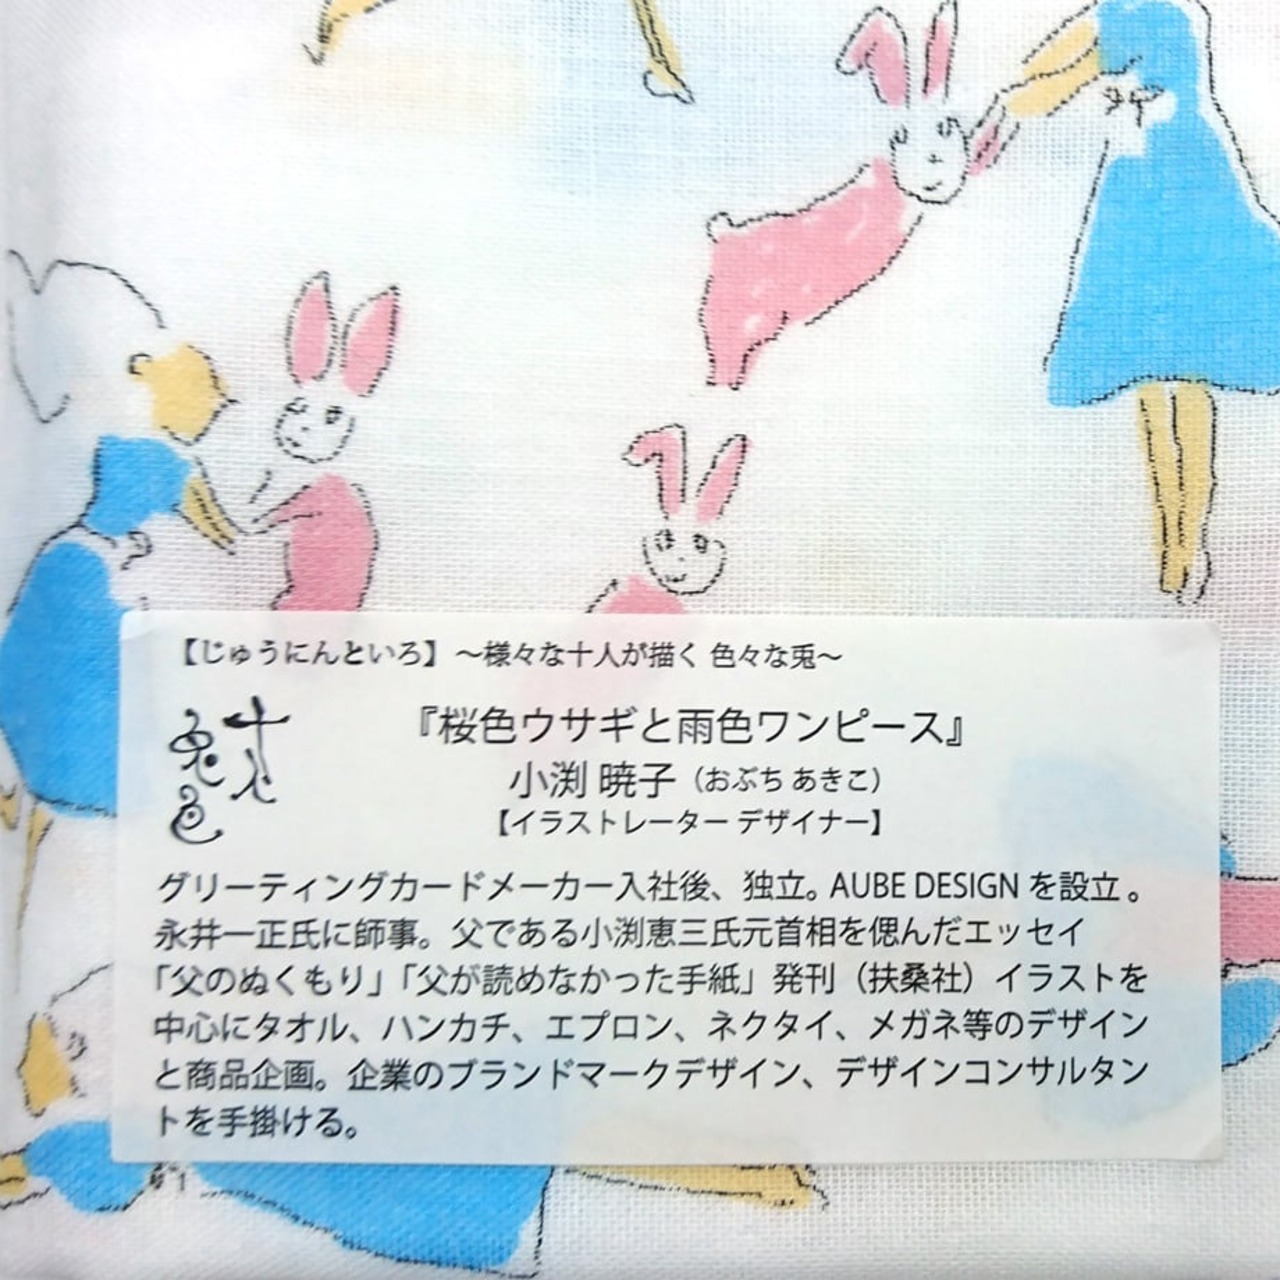 【じゅうにんといろ】〜様々な十人が描く 色々な兎〜
十人
兎色
『桜色ウサギと雨色ワンピース』
小渕 暁子（おぶち あきこ）
【イラストレーター デザイナー】
グリーティングカードメーカー入社後、独立。AUBE DESIGN を設立。
永井一正氏に師事。父である小渕恵三氏元首相を偲んだエッセイ
「父のぬくもり」「父が読めなかった手紙」発刊（扶桑社）イラストを
中心にタオル、ハンカチ、エプロン、ネクタイ、メガネ等のデザイン
と商品企画。企業のブランドマークデザイン、デザインコンサルタン
トを手掛ける。